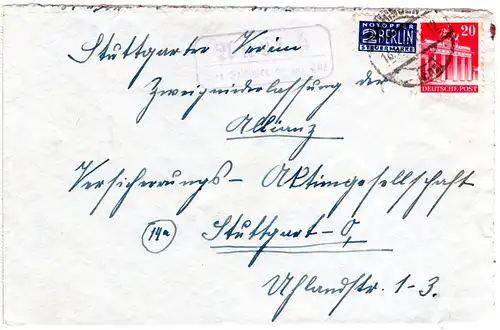 NOTOPFER
2 BERLIN
STEUERMARKE
20
DEUTSCHE POST
Stuttgarter Verein
Zweigniederlassung der
Allianz
Versicherungs- Aktiengesellschaft
14a
Stuttgart-O
Uhlandstr. 1-3.